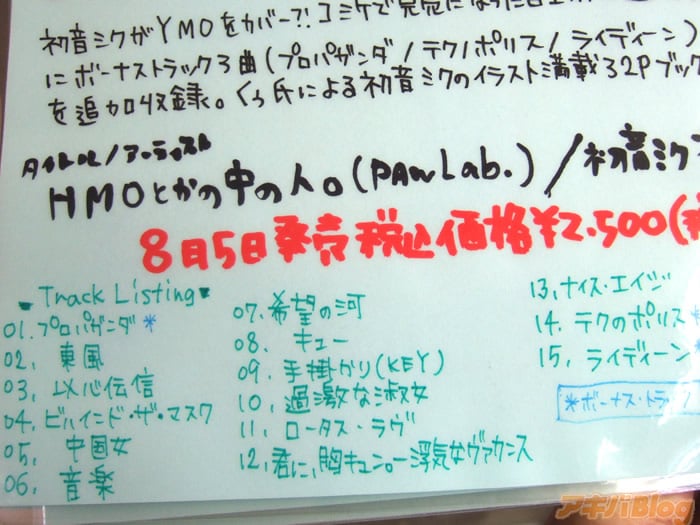 初音ミクがYMOをカバー?!コミケで完売になった
にボーナストラック3曲(プロパガンダ/テクノポリス/ライディーン)
を追加収録。くっ氏による初音ミクのイラスト満載32Pブック
タイトル/アーティスト
HMOとかの中の人。(PAw Lab.)/初音ミク
8月5日発売 税込価格¥2,500(
Track Listing
01.プロパガンダ*
02. 東風
03. 以心伝信
04.ビハインド・ザ・マスク
05. 中国女
06. 音楽
07.希望の河
08. キュー
09. 手掛かり(KEY)
10. 過激な淑女
11. ロータス・ラヴ
12.君に、胸キュン。ー浮気なヴァカンス
13.ナイス・エイジ
14. テクのポリス*
15. ライディーン*
*ボーナス・トラック
アキバBlog